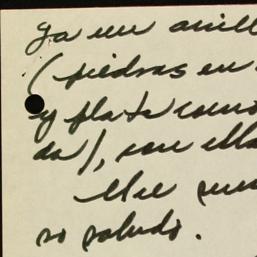 ga un anill
(piedras en
y plata como
da), con ella
Me
so saludo.